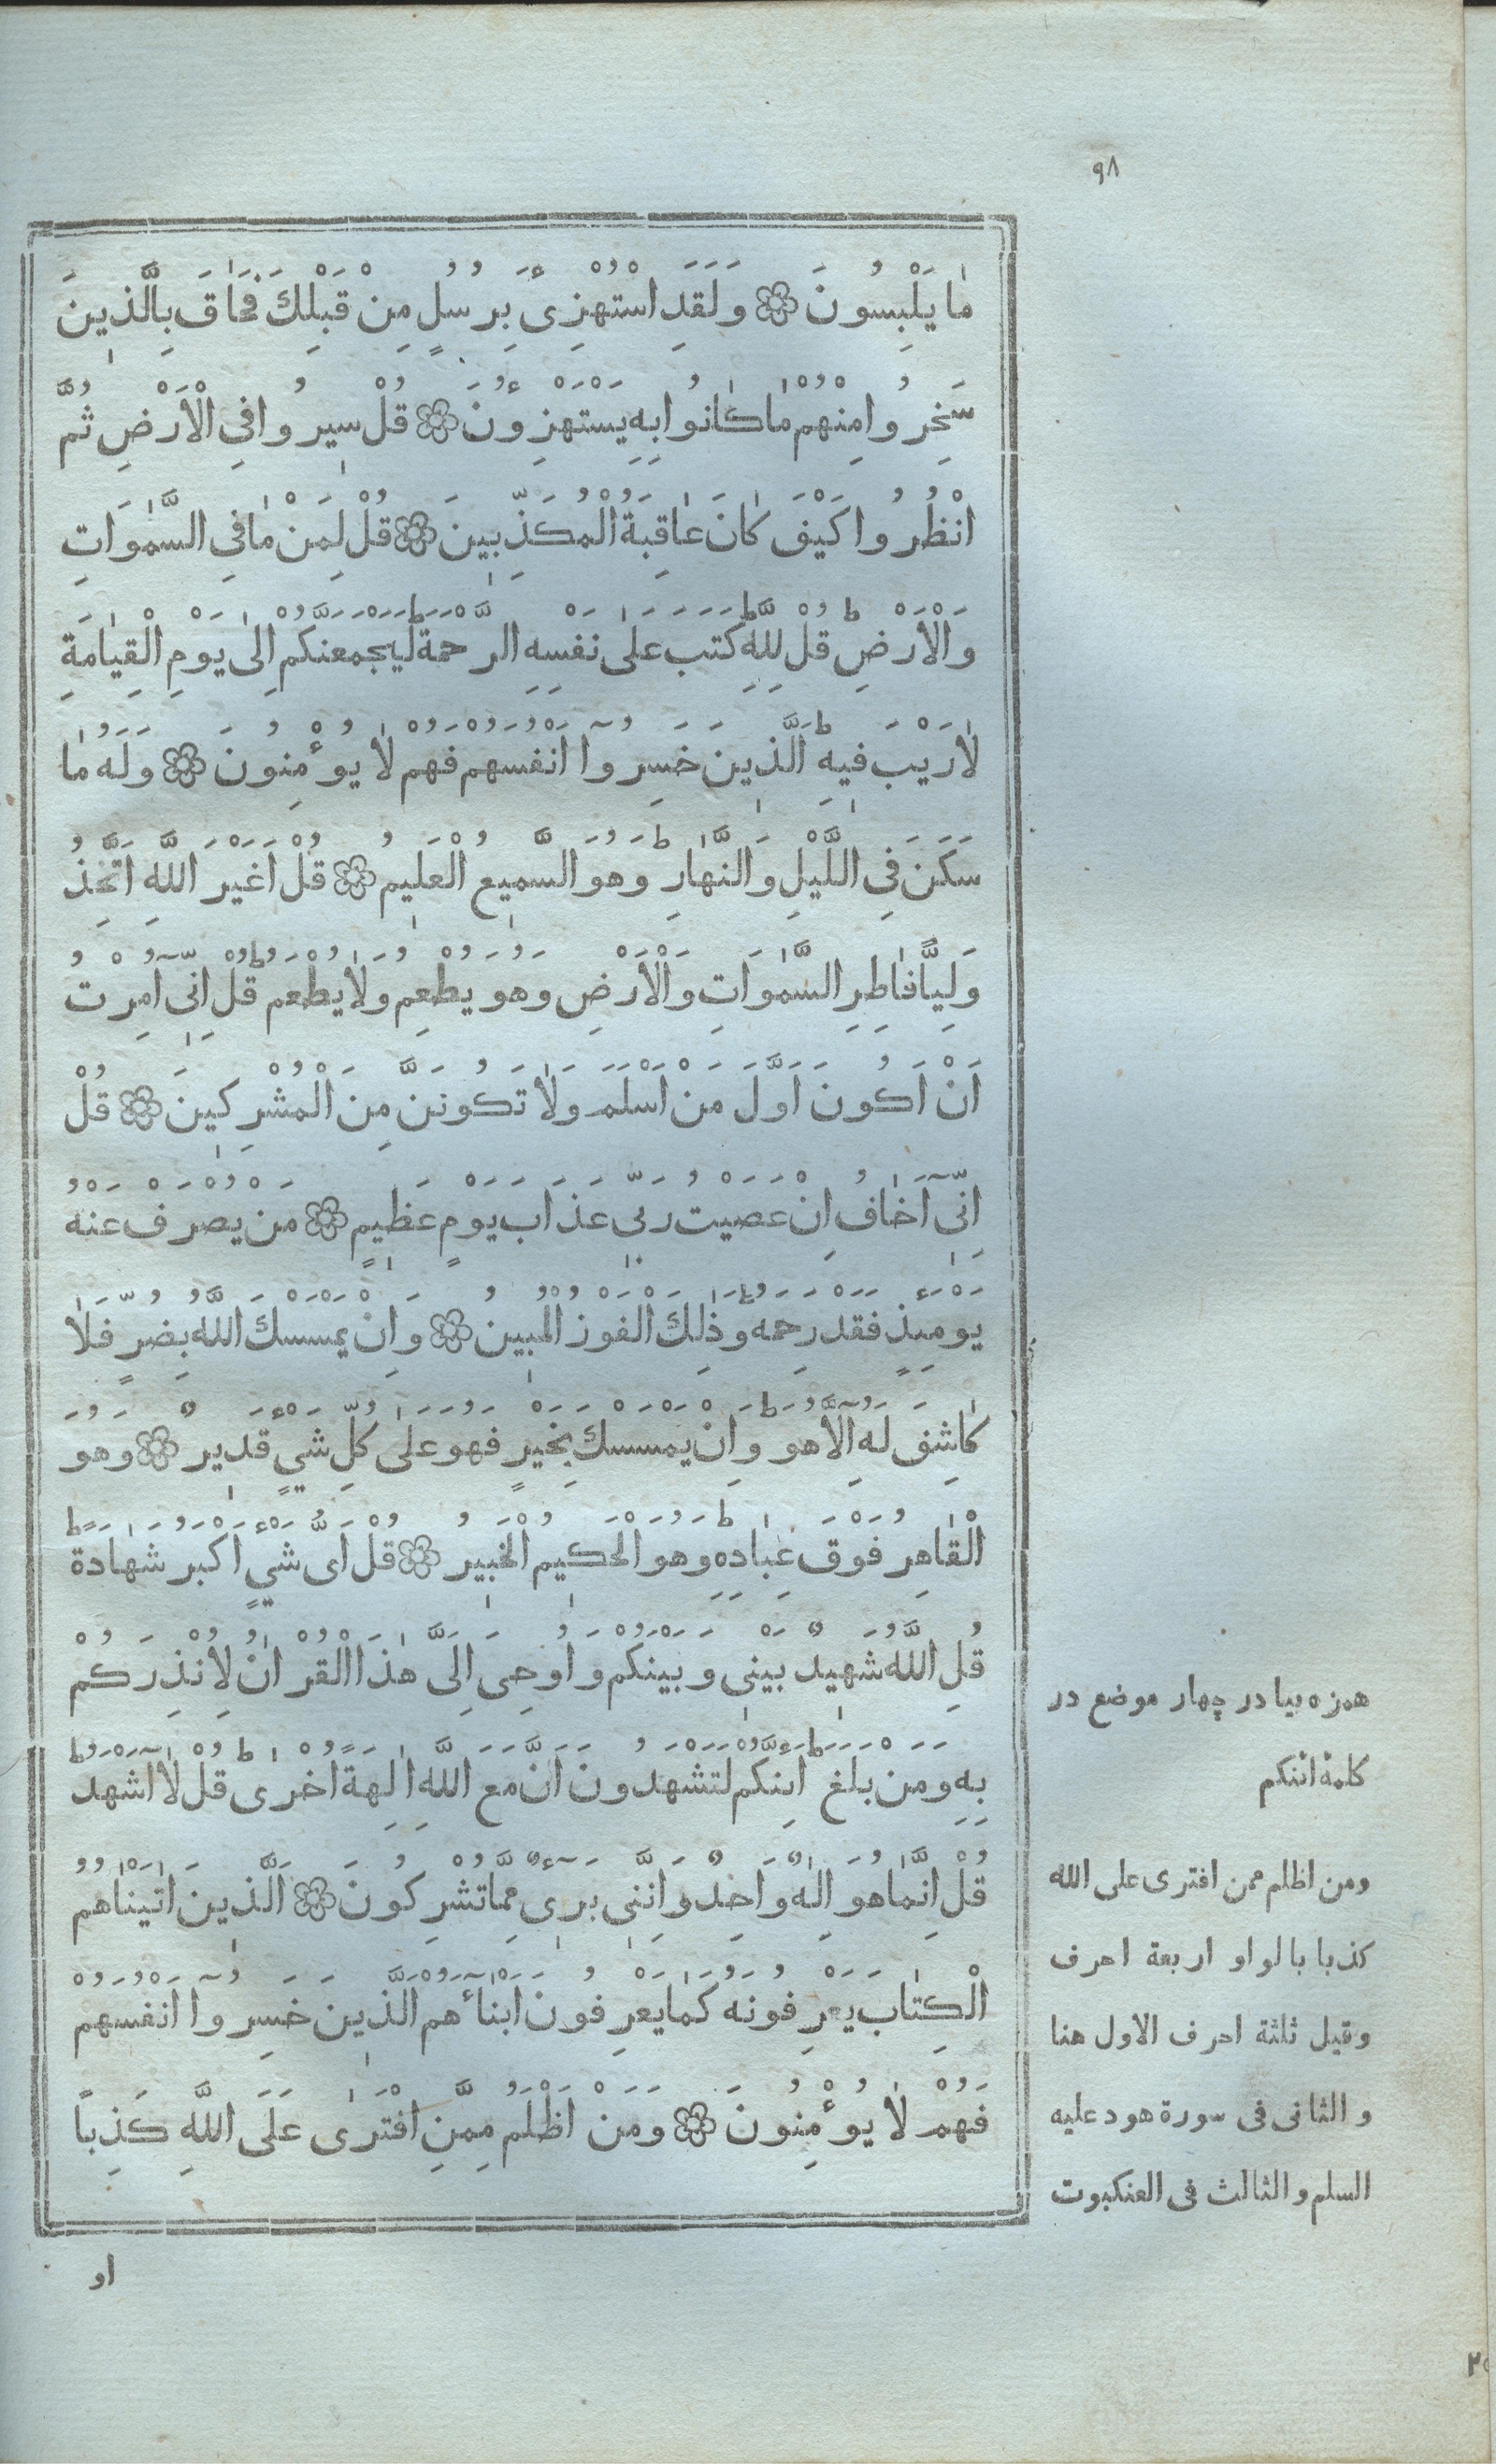 ٩٨
مٰا يَلْبِسُونَ ۞ وَلَقَدِ اسْتُهْزِئَ بِرُسُلٍ مِنْ قَبْلِكَ فَحٰاقَ بِالَّذِينَ
سَخِرُوا مِنْهُمْ مٰا كٰانُوا بِهِ يَسْتَهْزِؤُنَ ۞ قُلْ سِيرُوا فِي الْاَرْضِ ثُمَّ
انْظُرُوا كَيْفَ كٰانَ عٰاقِبَةُ الْمُكَذِّبِينَ ۞ قُلْ لِمَنْ مٰا فِي السَّمٰوَاتِ
وَالْاَرْضِ ط قُلْ لِلّٰهِ ط كَتَبَ عَلٰى نَفْسِهِ الرَّحْمَةَ ط لَيَجْمَعَنَّكُمْ اِلٰى يَوْمِ الْقِيٰامَةِ
لٰا رَيْبَ فِيهِ ط اَلَّذِينَ خَسِرُوٓا اَنْفُسَهُمْ فَهُمْ لٰا يُؤْمِنُونَ ۞ وَلَهُ مٰا
سَكَنَ فِي اللَّيْلِ وَالنَّهٰارِ ط وَهُوَ السَّمِيعُ الْعَلِيمُ ۞ قُلْ اَغَيْرَ اللّٰهِ اَتَّخِذُ
وَلِيًّا فٰاطِرِ السَّمٰوَاتِ وَالْاَرْضِ وَهُوَ يُطْعِمُ وَلٰا يُطْعَمُ ط قُلْ اِنِّىٓ اُمِرْتُ
اَنْ اَكُونَ اَوَّلَ مَنْ اَسْلَمَ وَلٰا تَكُونَنَّ مِنَ الْمُشْرِكِينَ ۞ قُلْ
اِنِّىٓ اَخٰافُ اِنْ عَصَيْتُ رَبِّى عَذَابَ يَوْمٍ عَظِيمٍ ۞ مَنْ يُصْرَفْ عَنْهُ
يَوْمَئِذٍ فَقَدْ رَحِمَهُ ط وَذٰلِكَ الْفَوْزُ الْمُبِينُ ۞ وَاِنْ يَمْسَسْكَ اللّٰهُ بِضُرٍّ فَلٰا
كٰاشِفَ لَهُٓ اِلَّا هُوَ ط وَاِنْ يَمْسَسْكَ بِخَيْرٍ فَهُوَ عَلٰى كُلِّ شَيْءٍ قَدِيرٌ ۞ وَهُوَ
الْقٰاهِرُ فَوْقَ عِبٰادِهِ ط وَهُوَ الْحَكِيمُ الْخَبِيرُ ۞ قُلْ اَىُّ شَيْءٍ اَكْبَرُ شَهٰادَةً ط
قُلِ اللّٰهُ شَهِيدٌ بَيْنِى وَبَيْنَكُمْ وَاُوحِىَ اِلَىَّ هٰذَا الْقُرْاٰنُ لِاُنْذِرَكُمْ
بِهِ وَمَنْ بَلَغَ ط اَئِنَّكُمْ لَتَشْهَدُونَ اَنَّ مَعَ اللّٰهِ اٰلِهَةً اُخْرٰى ط قُلْ لٰٓا اَشْهَدُ ط
قُلْ اِنَّمٰا هُوَ اِلٰهٌ وَاحِدٌ وَاِنَّنِى بَرِىٓءٌ مِمَّا تُشْرِكُونَ ۞ اَلَّذِينَ اٰتَيْنٰاهُمُ
الْكِتٰابَ يَعْرِفُونَهُ كَمٰا يَعْرِفُونَ اَبْنٰآئَهُمْ اَلَّذِينَ خَسِرُوٓا اَنْفُسَهُمْ
فَهُمْ لٰا يُؤْمِنُونَ ۞ وَمَنْ اَظْلَمُ مِمَّنِ افْتَرٰى عَلَى اللّٰهِ كَذِباً
او
همزه بيا در چهار موضع در
كلمة ائنكم
ومن اظلم ممن افترى على الله
كذبا بالواو اربعة احرف
وقيل ثلثة احرف الاول هنا
والثانى فى سورة هود عليه
السلم والثالث فى العنكبوت